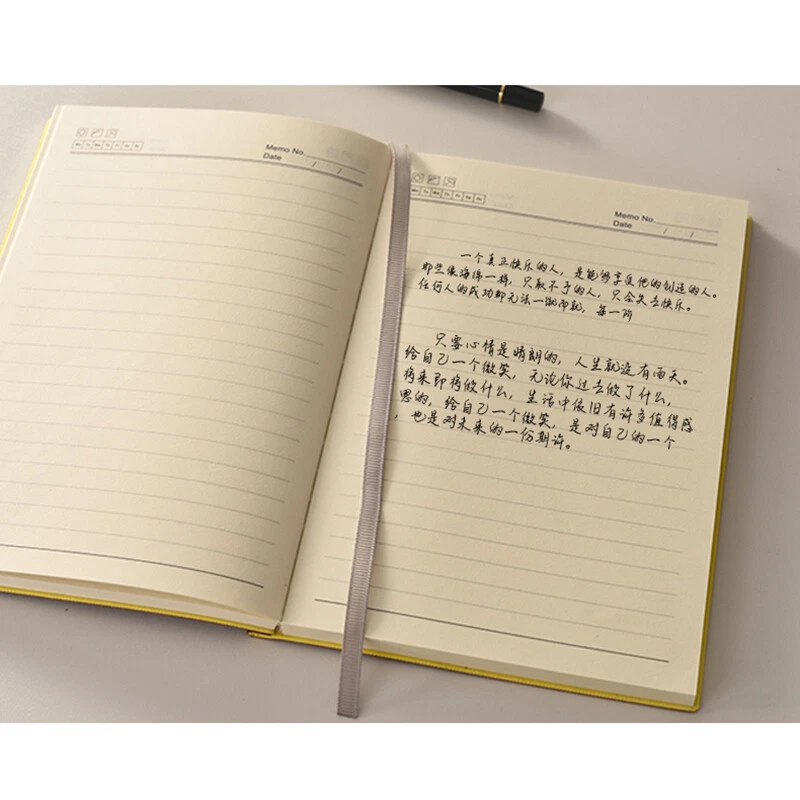 Memo No.
Date / /
Memo No.
Date / /
一个真正快乐的人，是能够享受他的创造的人。
那些像海绵一样，只取不予的人，只会失去快乐。
任何人的成功都无法一蹴而就，每一阶
只要心情是晴朗的，人生就没有雨天。
给自己一个微笑，无论你过去做了什么，
将来即将做什么，生活中依旧有许多值得感
恩的，给自己一个微笑，是对自己的一个
，也是对未来的一份期许。